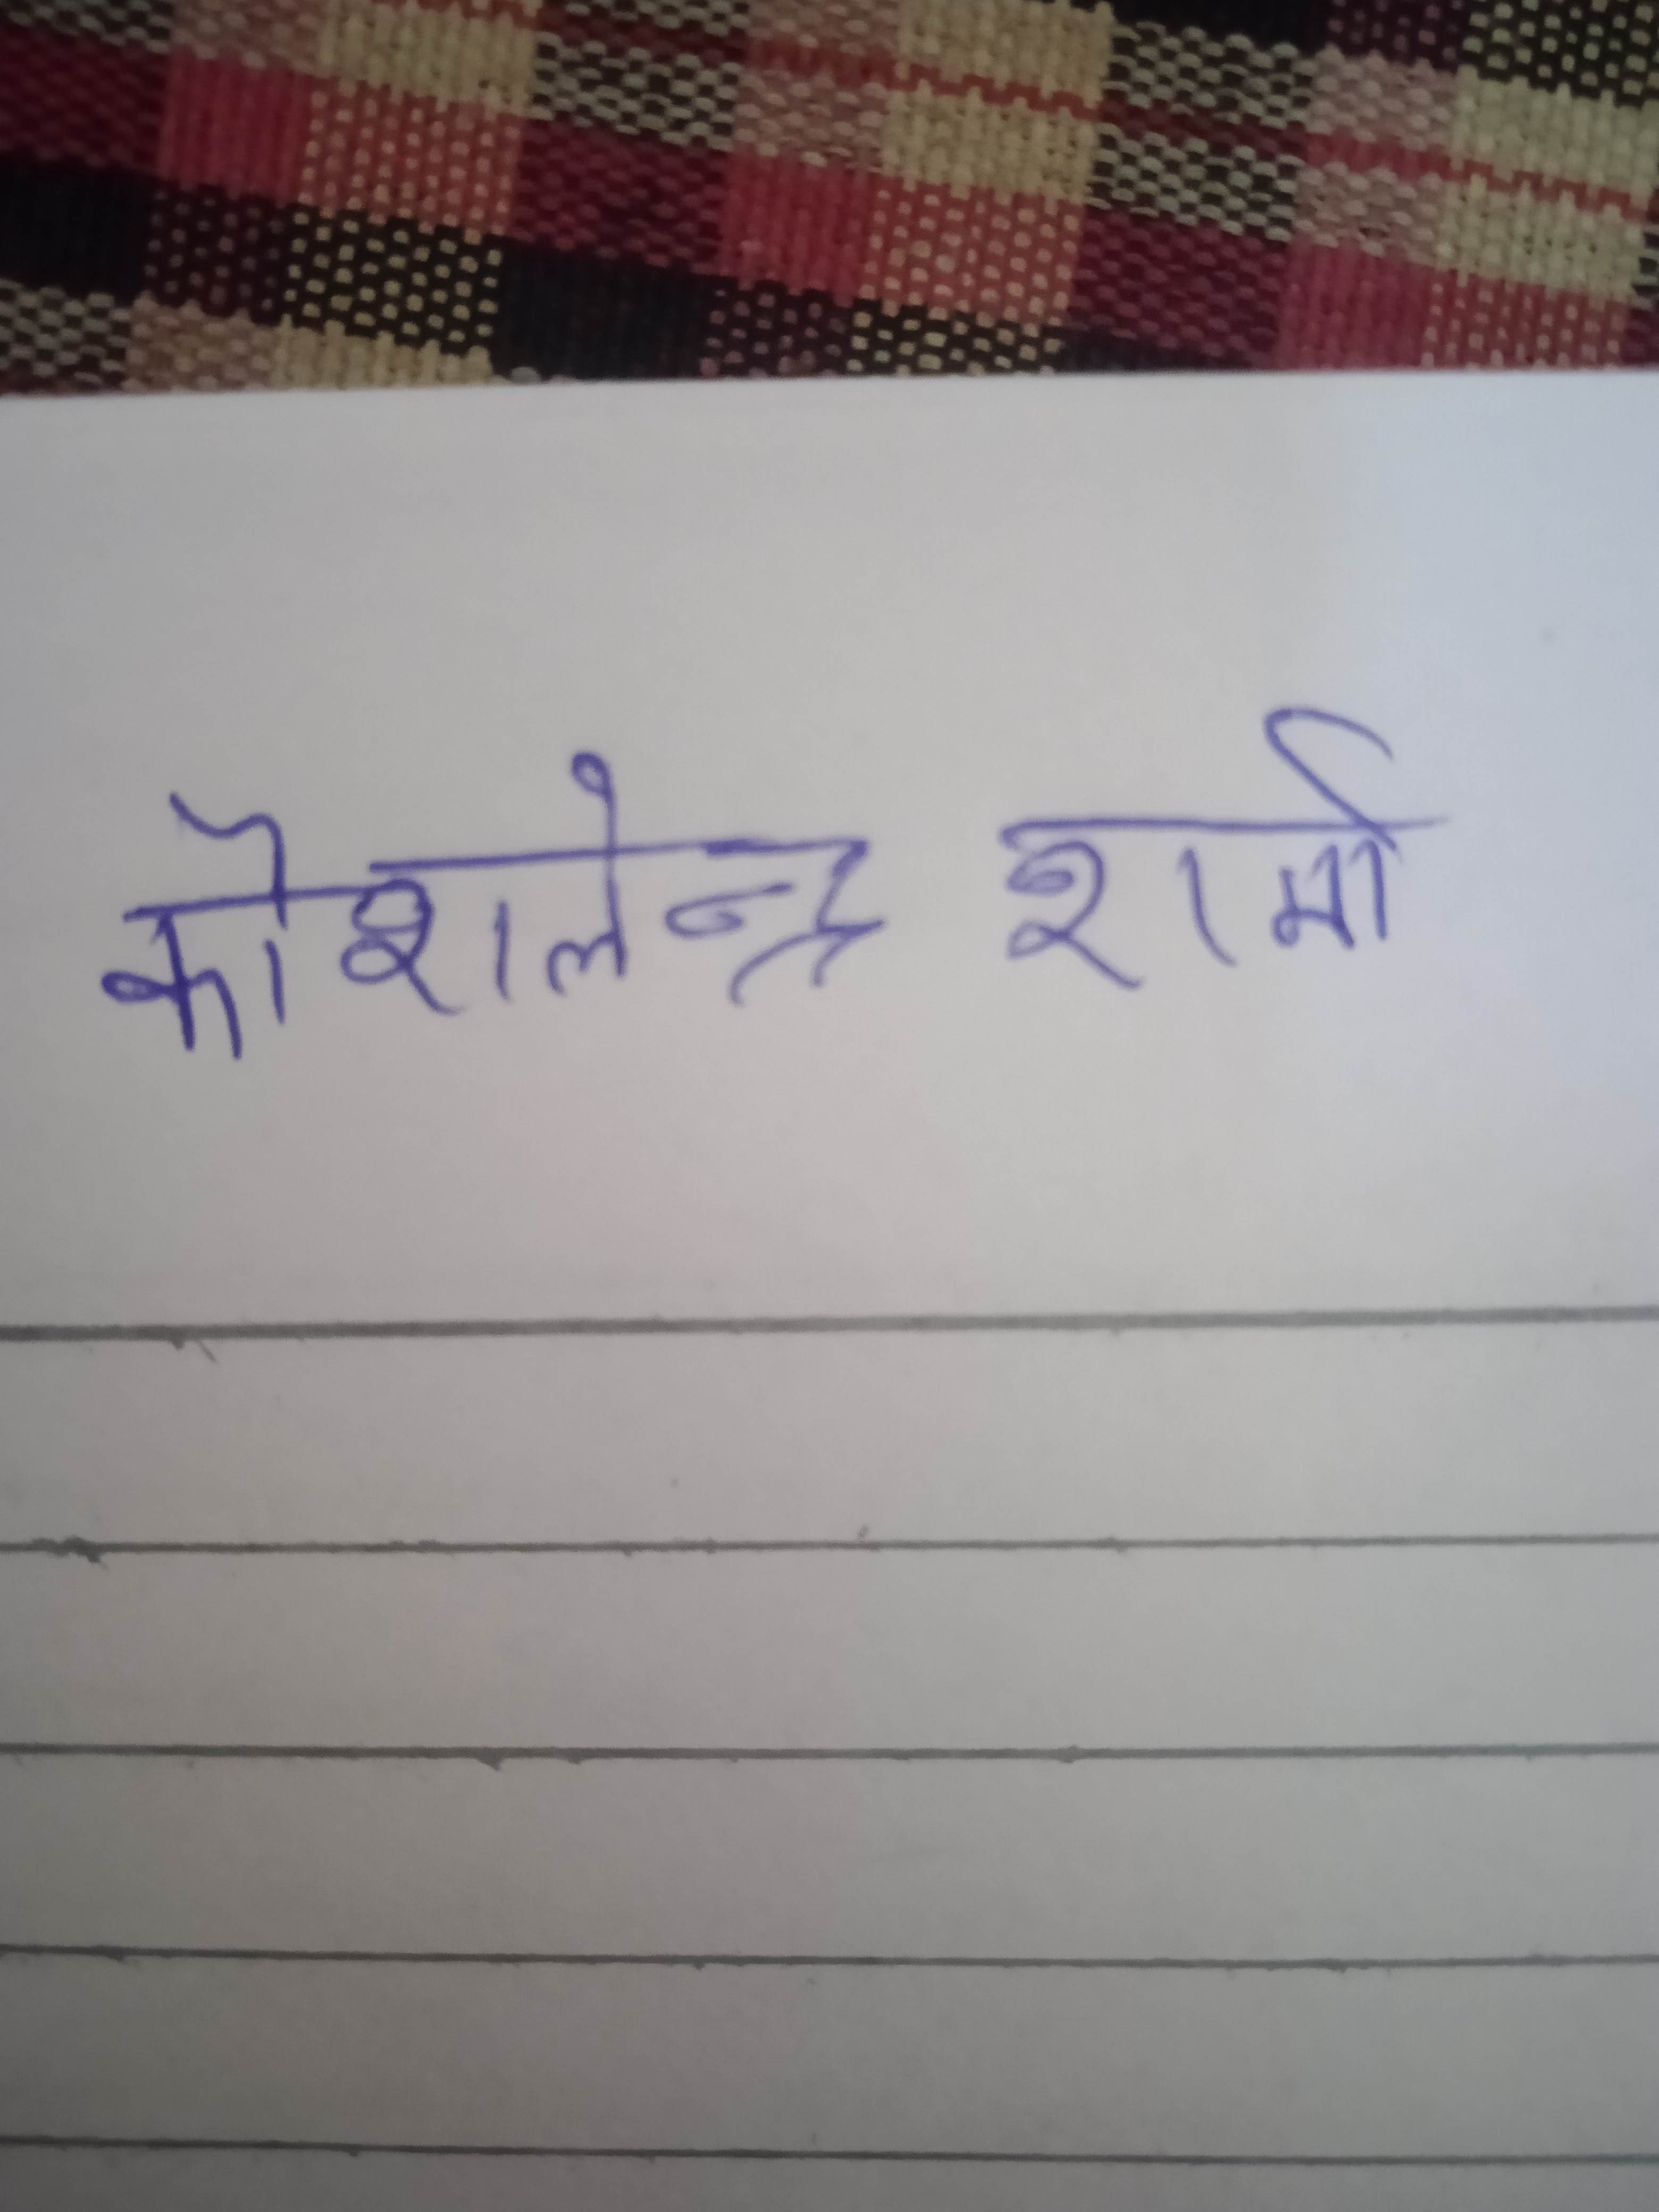 कोशलेन्द्र शर्मा